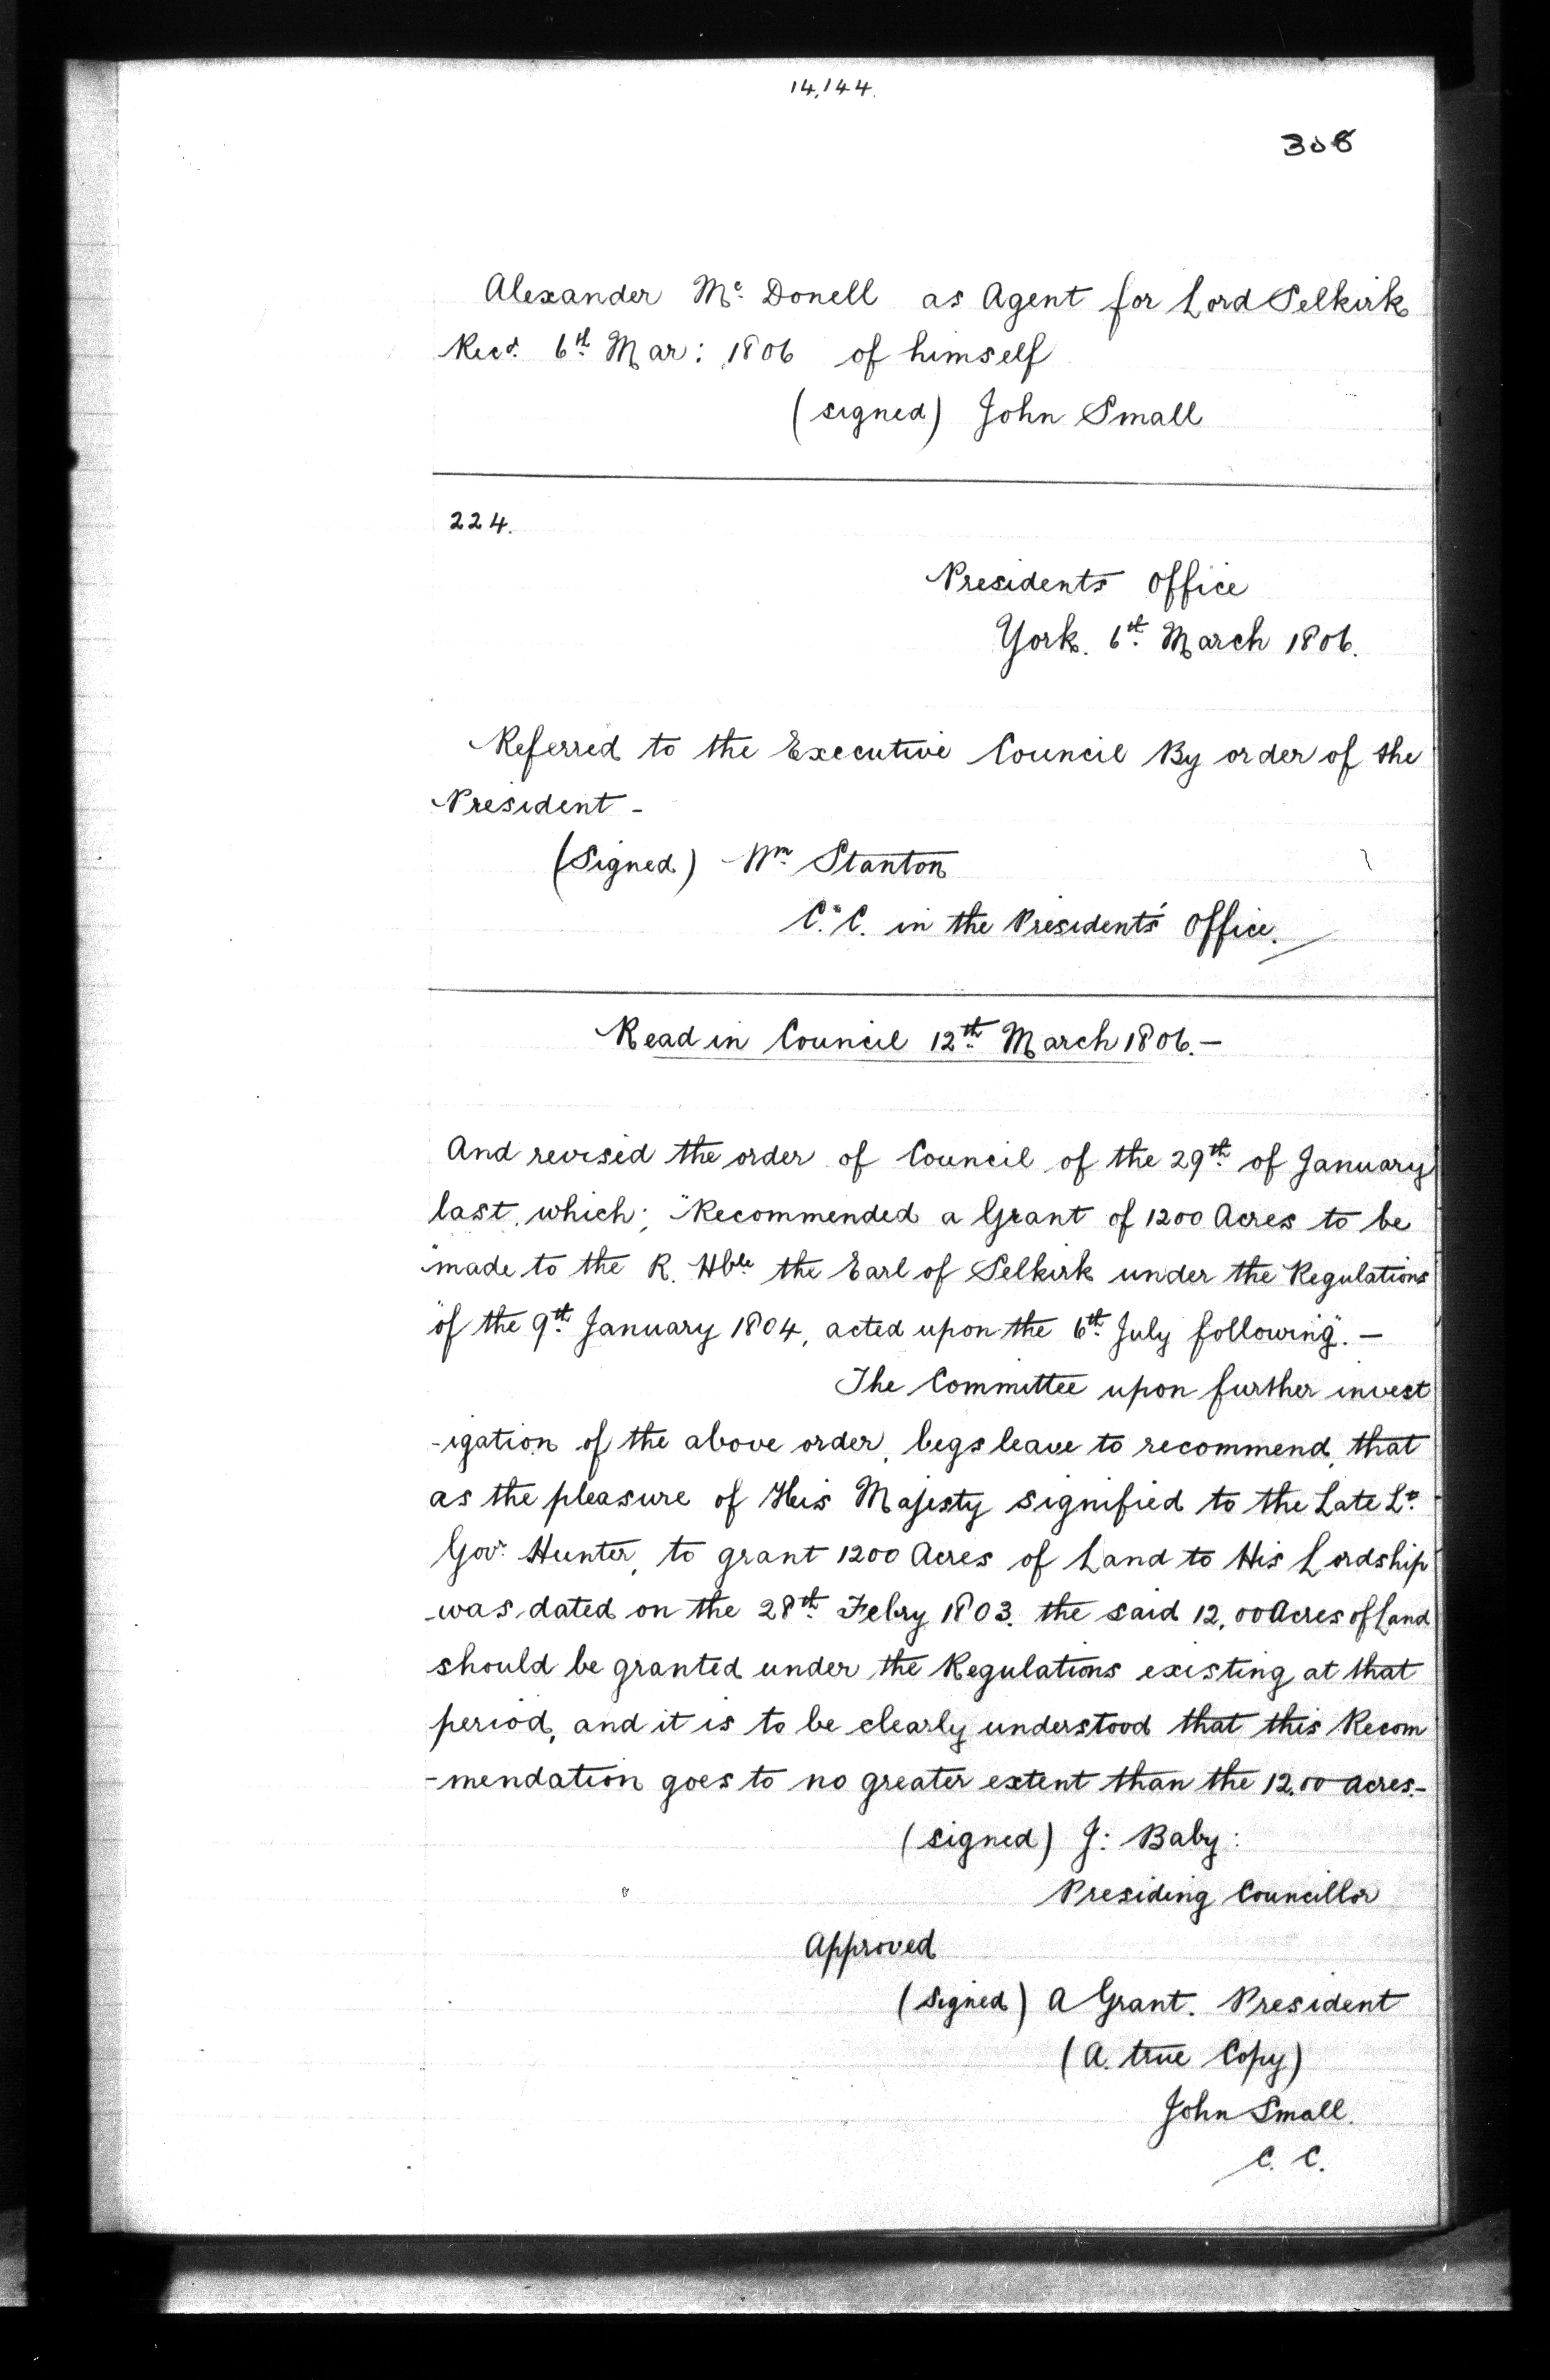 14,144.
308
Alexander Mc. Donell as Agent for Lord Selkirk
Recd. 6th. Mar: 1806 of himself
(signed) John Small
224.
Presidents Office
York. 6th. March 1806.
Referred to the Executive Council By order of the
President -
(Signed) Wm. Stanton
C. C. in the Presidents' Office.
Read in Council 12th. March 1806. -
And revised the order of Council of the 29th. of January
last, which; "Recommended a Grant of 1200 Acres to be
"made to the R. Hble the Earl of Selkirk under the Regulations
"of the 9th. January 1804, acted upon the 6th. July following". -
The Committee upon further invest
-igation of the above order, begs leave to recommend, that
as the pleasure of His Majesty signified to the Late Lt.
Govr. Hunter, to grant 1200 Acres of Land to His Lordship
was dated on the 28th. Febry 1803. the said 12,00 Acres of Land
should be granted under the Regulations existing at that
period, and it is to be clearly understood that this Recom
-mendation goes to no greater extent than the 12,00 acres. -
(signed) J: Baby:
Presiding Councillor
Approved
(signed) A Grant. President
(A. true Copy)
John Small.
C. C.